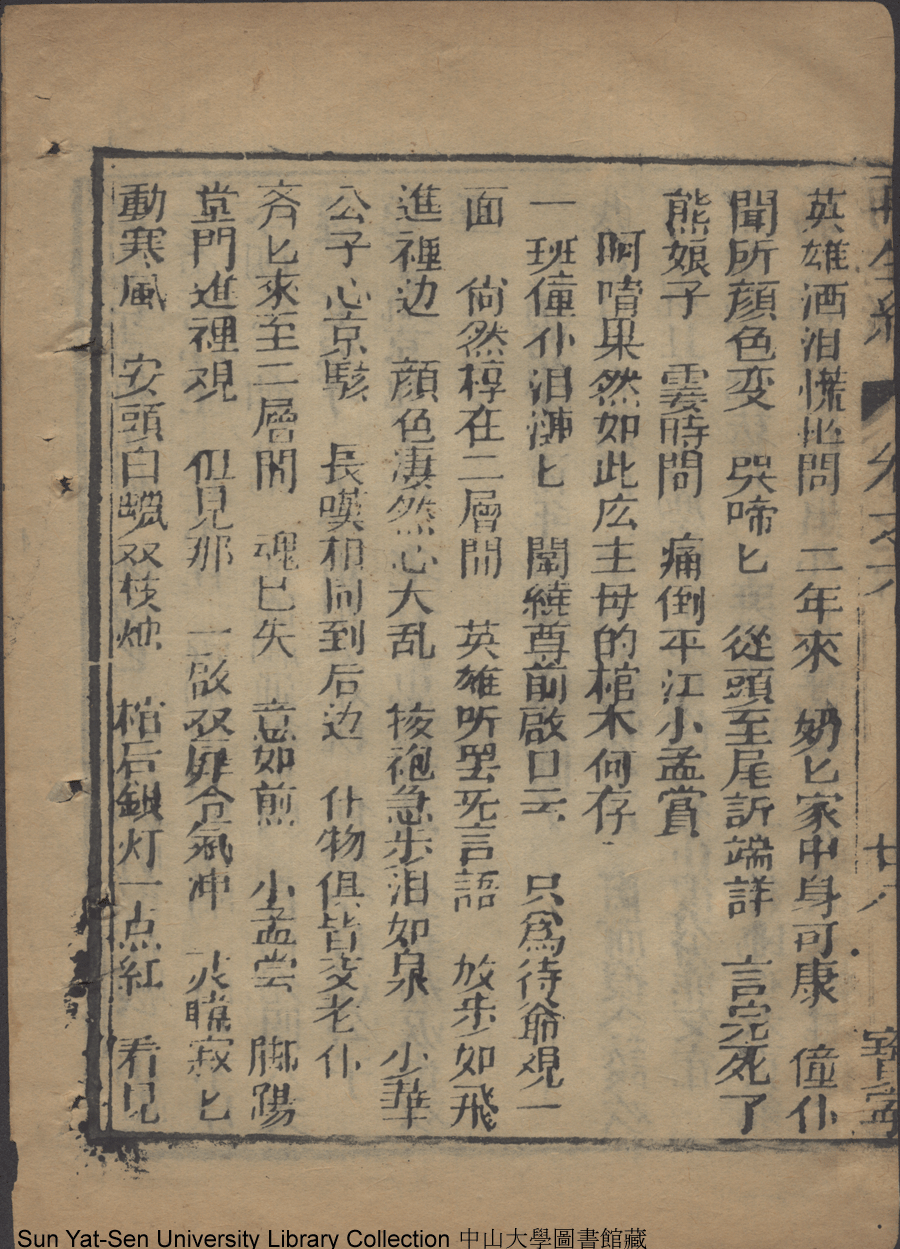 再生緣 卷之六 廿八 寶寧
英雄洒泪慌地問 二年來 奶匕家中身可康 僮仆
聞所顔色变 哭啼匕 從頭至尾訴端詳 言完死了
熊娘子 霎時問 痛倒平江小孟賞
啊唷果然如此庅主母的棺木何存
一班僮仆泪漣匕 闈繞尊前啟口云 只為待爺观一
面 尙然椁在二層間 英雄听罢旡言語 放步如飛
進裡边 顔色凄然心大乱 袯袍急步泪如泉 小華
公子心京駭 長嘆相同到后边 什物俱皆交老仆
斉匕來至二層間 魂已失 意如煎 小孟尝 脚陽
堂門進裡观 但見那 一啟双扉令氣冲 灵幃寂匕
動寒風 安頭白蠟双枝灺 棺后鎖灯一点紅 看見
Sun Yat-Sen University Library Collection 中山大學圖書館藏